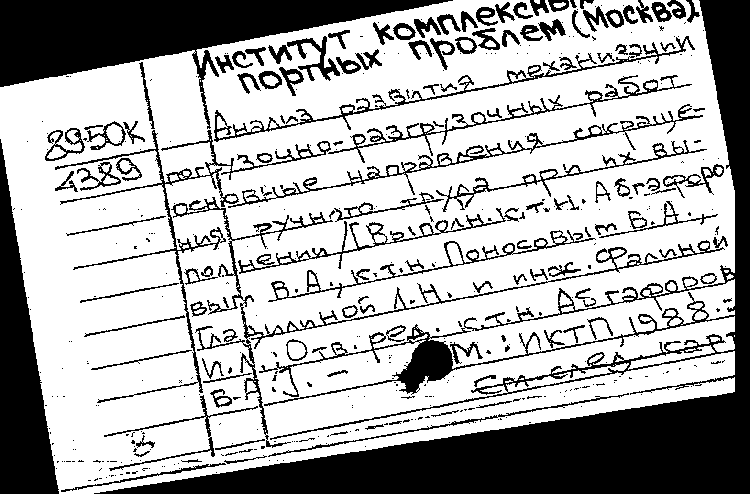 Институт комплексны
портных проблем (Москва).
89-50К
4389
Анализ развития механизации
погрузочно-разгрузочных работ
основные направления сокраще-
ния ручного труда при их вы-
полнении /[Выполн. к.т.н. Абгафоро-
вым В.А., к.т.н. Поносовым В.А.,
Гладилиной Л.Н. и инж. Фалиной
И.Л.; Отв. ред. к.т.н. Абгафоров
В.А.]. - М.: ИКТП, 1988.-
См. след. карт
8